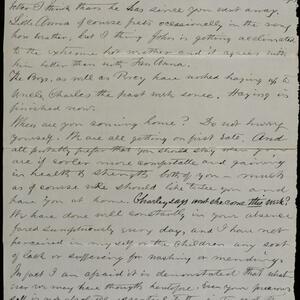 better I think than he has since you went away.
Little Anna of course frets occasionally in the very
hot weather, but I think John is getting acclimated
to the extreme hot weather and it agrees with
him better than with
The Boys, as well as Percy have worked haying up to
Uncle Charles the past week some. Haying is
finished now.
When are you coming home? Do not hurry
yourself. We are all getting on first rate. And
all probably prefer that you should stay
if so be you are comfortable and gaining
in health & strength both of you — much
as of course we should like to see you and
have you at home. Charley says will she come this week?
We have done well constantly in your absence
fared sumptuously every day, and I have not
perceived in myself or the children any sort
of lack or suffering for washing or mending.
In fact I am afraid it is demonstrated that what
ever we may have thought heretofore. Even your presence